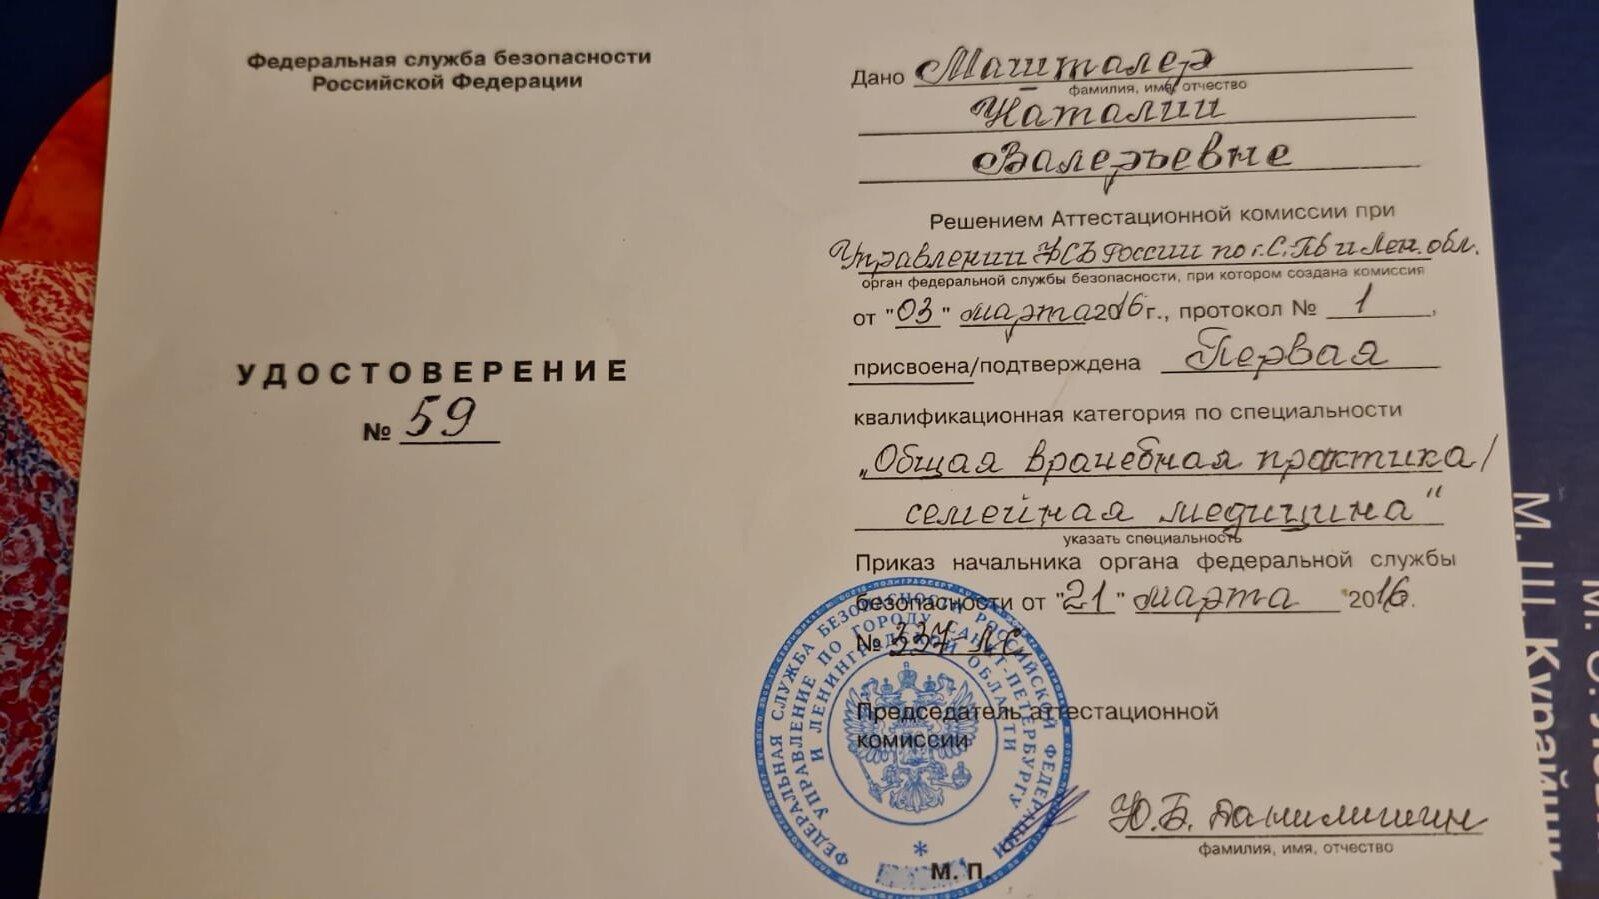 Федеральная служба безопасности
Российской Федерации
УДОСТОВЕРЕНИЕ
№ 59
Дано Машталер
фамилия, имя, отчество
Наталии
Валерьевне
Решением Аттестационной комиссии при
Управлении ФСБ России по г.С.-Пб и Лен. обл.
орган федеральной службы безопасности, при котором создана комиссия
от "03" марта 2016г., протокол № 1,
присвоена/подтверждена Первая
квалификационная категория по специальности
„Общая врачебная практика/
семейная медицина"
указать специальность
Приказ начальника органа федеральной службы
безопасности от "21" марта 2016.
№ 337-ЛС
Председатель аттестационной
комиссии
Ю.Б. Данилишин
фамилия, имя, отчество
М. П.
ФЕДЕРАЛЬНАЯ СЛУЖБА БЕЗОПАСНОСТИ РОССИЙСКОЙ ФЕДЕРАЦИИ
УПРАВЛЕНИЕ ПО ГОРОДУ САНКТ-ПЕТЕРБУРГУ
И ЛЕНИНГРАДСКОЙ ОБЛАСТИ
М. Ш. Курайши